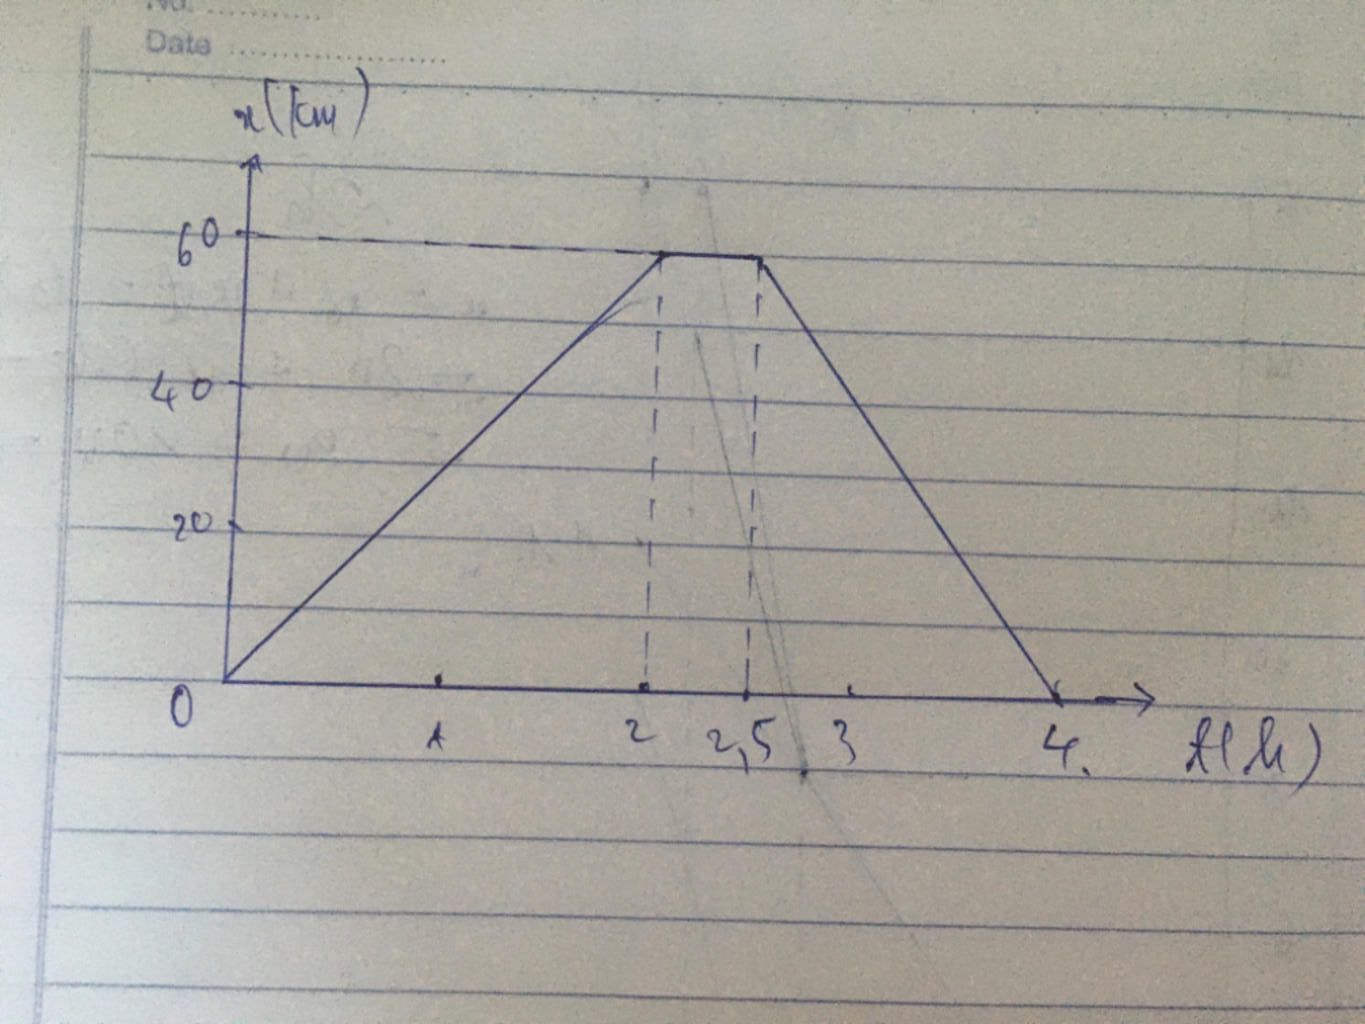 No. ............
Date ......................
x(km)
60
40
20
0
1 2 2,5 3 4. t(h)